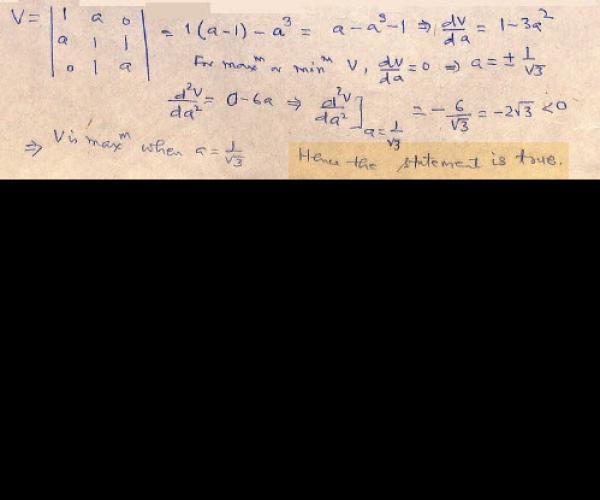 V = | 1 a 0 |
| a 1 1 |
| 0 1 a | = 1(a-1) - a³ = a - a³ - 1 ⇒ dv/da = 1 - 3a²
For maxᵐ or minᵐ V, dv/da = 0 ⇒ a = ± 1/√3
d²v/da² = 0 - 6a ⇒ d²v/da² ]ₐ₌₁/√3 = - 6/√3 = -2√3 < 0
⇒ V is maxᵐ when a = 1/√3
Hence the statement is true.